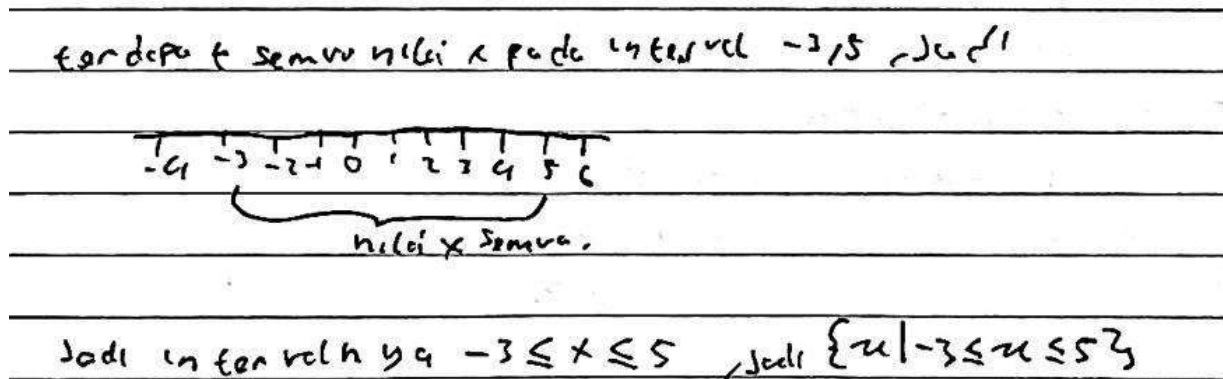 terdapat semua nilai x pada interval -3,5, Jadi
-4 -3 -2 -1 0 1 2 3 4 5 6
nilai x semua.
Jadi intervalnya -3 ≤ x ≤ 5, Jadi {x|-3≤x≤5}